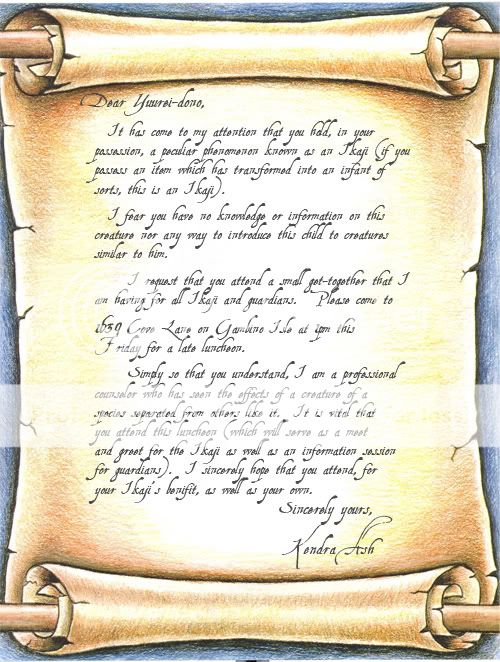 Dear Yuurei-dono,
It has come to my attention that you held, in your
possession, a peculiar phenomenon known as an Ikaji (if you
possess an item which has transformed into an infant of
sorts, this is an Ikaji).
I fear you have no knowledge or information on this
creature nor any way to introduce this child to creatures
similar to him.
I request that you attend a small get-together that I
am having for all Ikaji and guardians. Please come to
1639 Cove Lane on Gambino Isle at 1pm this
Friday for a late luncheon.
Simply so that you understand, I am a professional
counselor who has seen the effects of a creature of a
species separated from others like it. It is vital that
you attend this luncheon (which will serve as a meet
and greet for the Ikaji as well as an information session
for guardians). I sincerely hope that you attend, for
your Ikaji's benifit, as well as your own.
Sincerely yours,
Kendra Ash